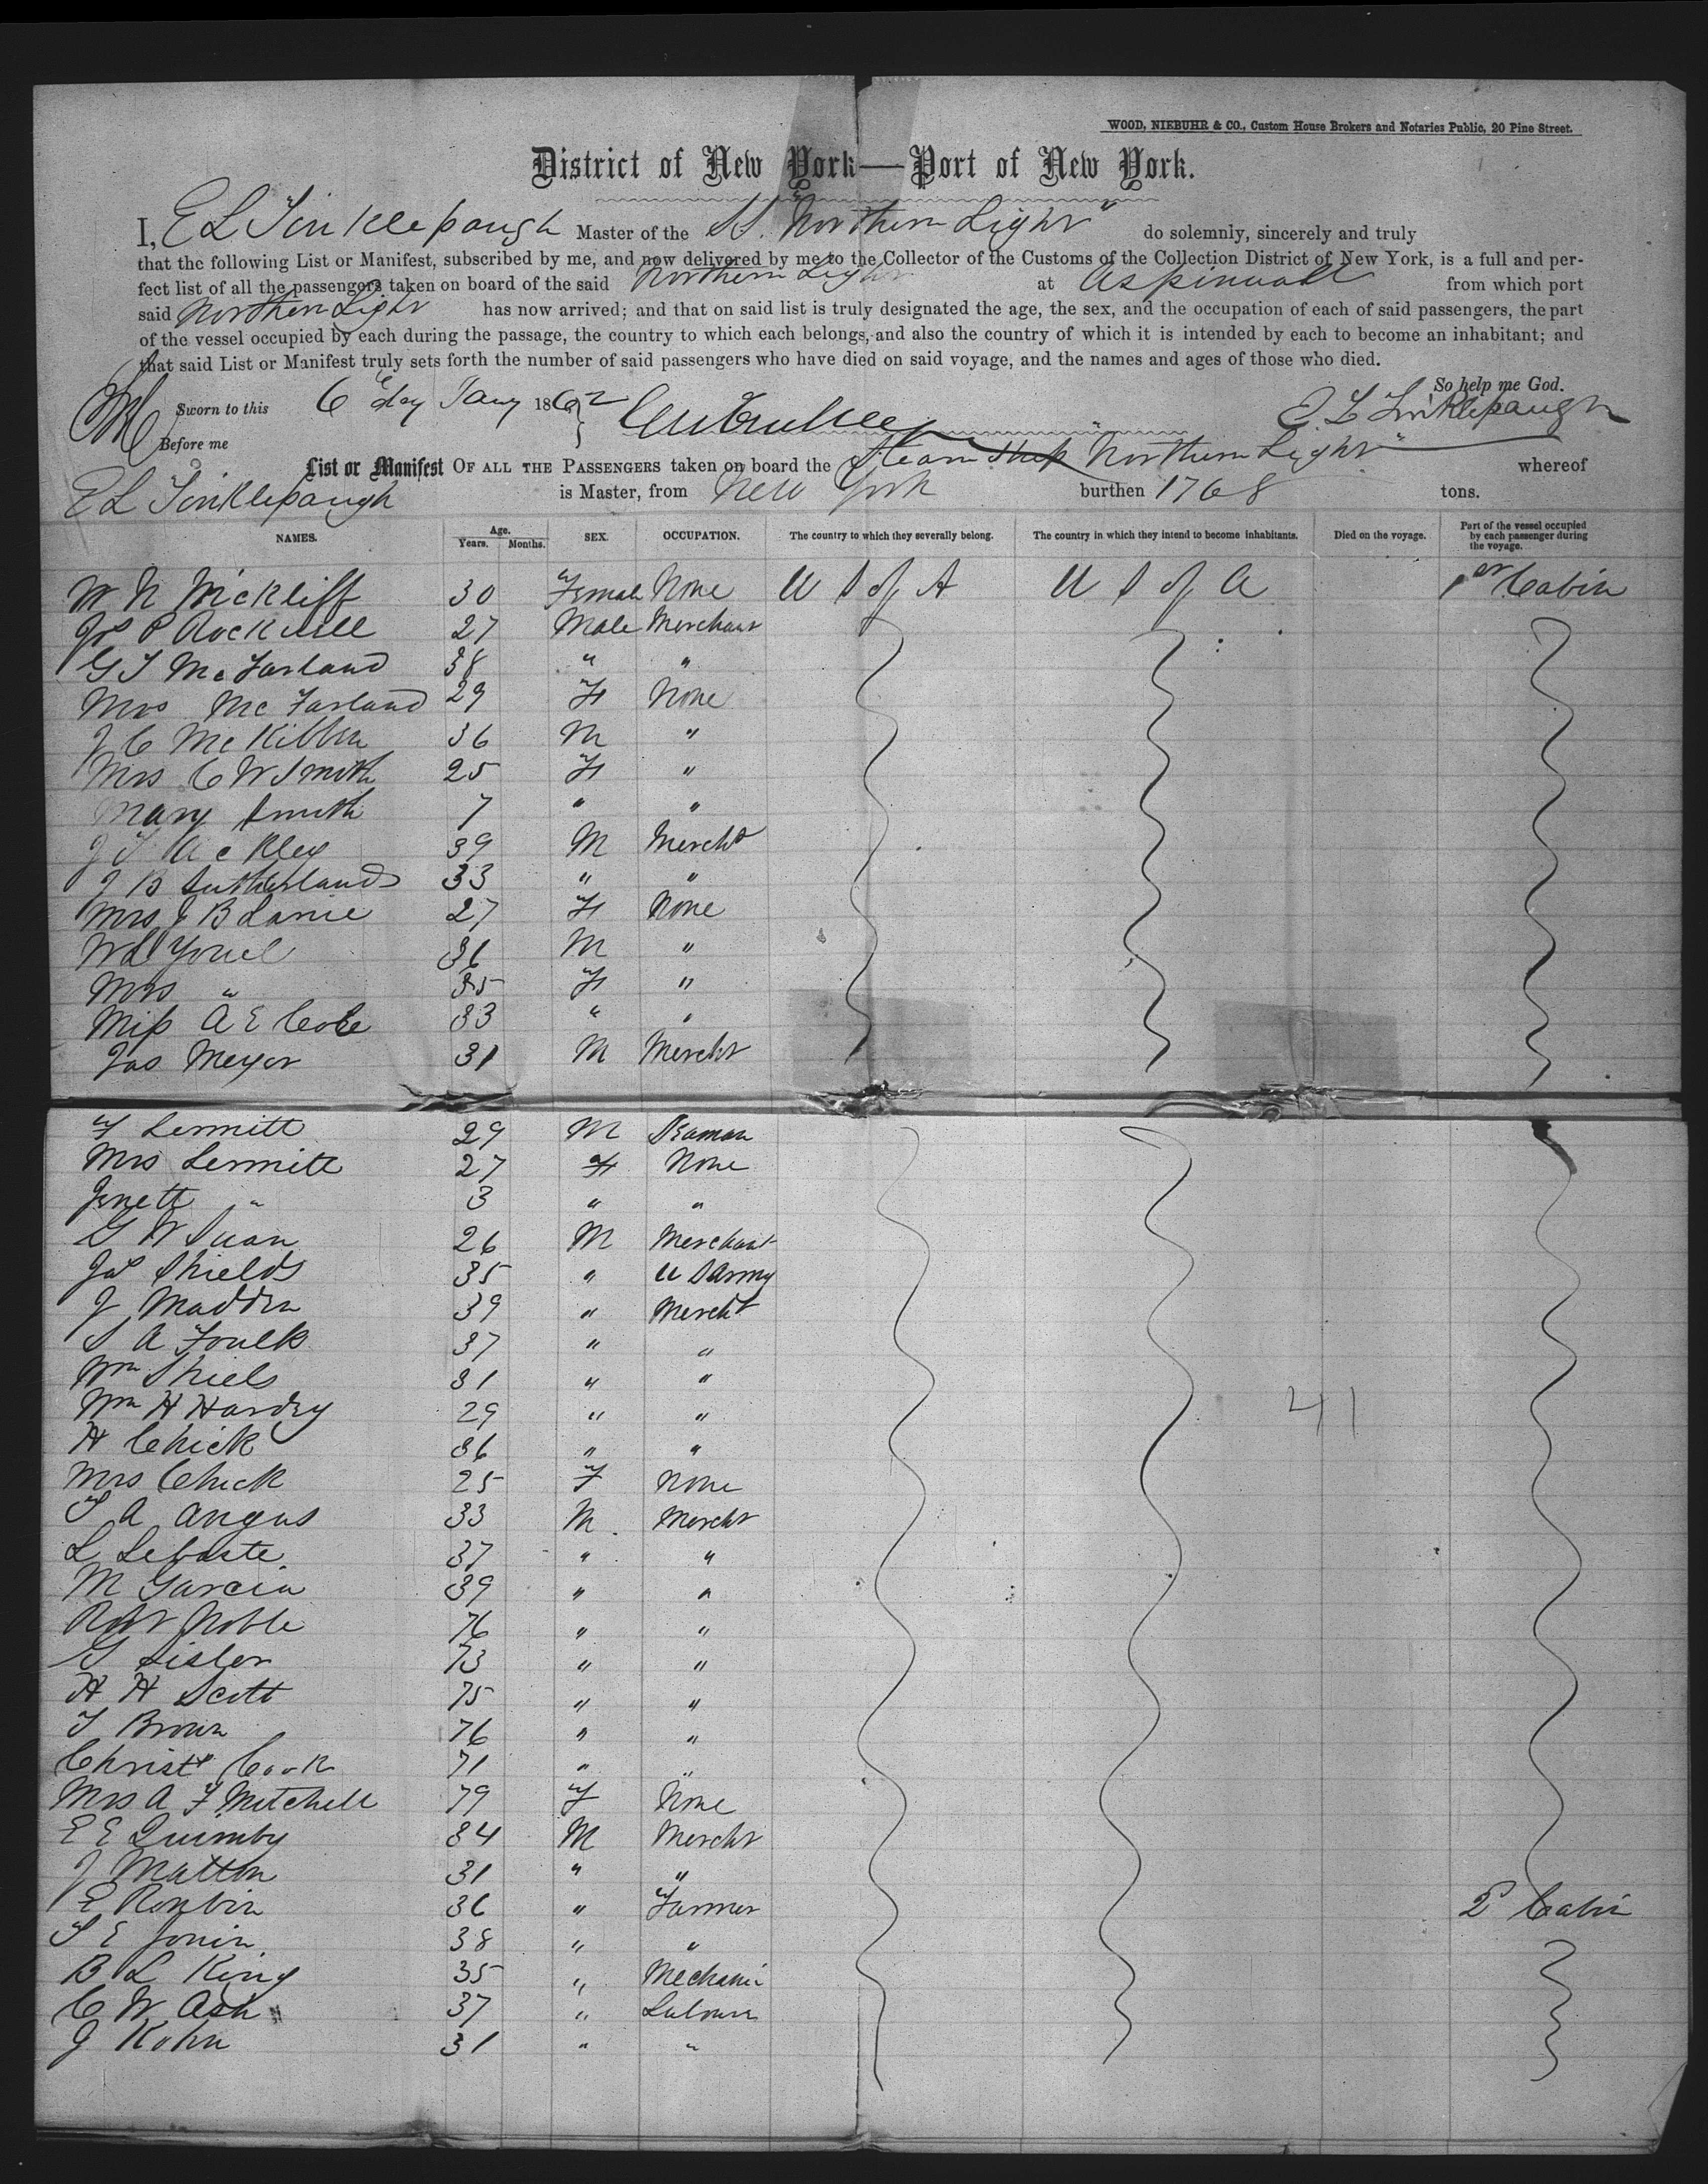 WOOD, NIEBUHR & CO., Custom House Brokers and Notaries Public, 20 Pine Street.
District of New York—Port of New York.
I, E L Tinklepaugh Master of the SS. "Northern Light" do solemnly, sincerely and truly
that the following List or Manifest, subscribed by me, and now delivered by me to the Collector of the Customs of the Collection District of New York, is a full and per-
fect list of all the passengers taken on board of the said Northern Light at Aspinwall from which port
said Northern Light has now arrived; and that on said list is truly designated the age, the sex, and the occupation of each of said passengers, the part
of the vessel occupied by each during the passage, the country to which each belongs, and also the country of which it is intended by each to become an inhabitant; and
that said List or Manifest truly sets forth the number of said passengers who have died on said voyage, and the names and ages of those who died.
So help me God.
Sworn to this 6 day Jany 1862 E. L Tinklepaugh
Before me
List or Manifest OF ALL THE PASSENGERS taken on board the Steam Ship "Northern Light" whereof
E L Tinklepaugh is Master, from New York burthen 1768 tons.
NAMES. Age. Years. Months. SEX. OCCUPATION. The country to which they severally belong. The country in which they intend to become inhabitants. Died on the voyage. Part of the vessel occupied by each passenger during the voyage.
W N McKliff 30 Female None U S of A U S of A 1st Cabin
P Rockwell 27 Male Merchant
G T McFarland 38 " "
Mrs McFarland 29 F None
J C McKibben 36 M "
Mrs C W Smith 25 F "
Mary Smith 7 " "
J T Ackley 39 M Mercht
J B Sutherland 33 " "
Mrs J B Lanie 27 F None
W L Youel 36 M "
Mrs " 35 F "
Miss A E Cole 33 " "
Jas Meyer 31 M Mercht
F Lermitt 29 M Seaman
Mrs Lermitt 27 F None
Jenett " 3 " "
G W Swan 26 M Merchant
Jas Shields 35 " U S Army
J Madden 39 " Mercht
S A Foulk 37 " "
Wm Shiels 31 " "
Wm H Hardey 29 " "
41
H Chick 36 " "
Mrs Chick 25 F None
T A Angus 33 M Mercht
L Lebaste 37 " "
M Garcia 39 " "
Robt Noble 76 " "
G Sisler 73 " "
H H Scott 75 " "
T Brown 76 " "
Christr Cook 71 " "
Mrs A F Mitchell 79 F None
E E Quimby 34 M Mercht
J Matton 31 " "
E Ronbin 36 " Farmer 2d Cabin
T E Jonin 38 " "
B L King 35 " Mechanic
C W Ash 37 " Labourer
J Kohn 31 " "